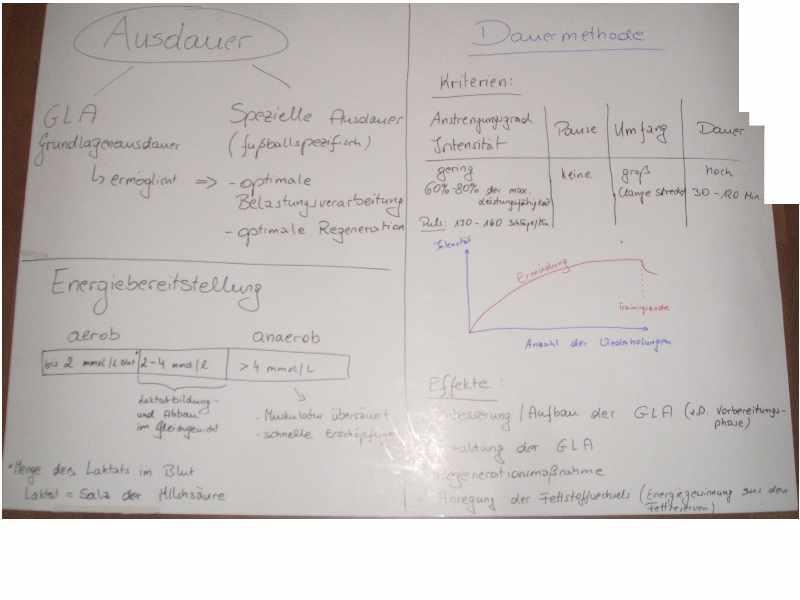 Ausdauer
GLA
Grundlagenausdauer
↳ ermöglicht =>
Spezielle Ausdauer
(fußballspezifisch)
- optimale
Belastungsverarbeitung
- optimale Regeneration
Energiebereitstellung
aerob
anaerob
bis 2 mmol/l Blut*
2-4 mmol/l
> 4 mmol/L
Laktatbildung-
und Abbau
im Gleichgewicht
- Muskulatur übersäuert
- schnelle Erschöpfung
*Menge des Laktats im Blut
Laktat = Salz der Milchsäure
Dauermethode
Kriterien:
Anstrengungsgrad
Intensität
Pause
Umfang
Dauer
gering
60%-80% der max.
Leistungsfähigkeit
Puls: 130-160 Schläge/Min
keine
groß
(lange Strecke)
hoch
30-120 Min.
Intensität
Ermüdung
Trainingsende
Anzahl der Wiederholungen
Effekte:
/Aufbau der GLA (v.a. Vorbereitungs-
phase)
der GLA
Regenerationsmaßnahme
Anregung der Fettstoffwechsels (Energiegewinnung aus den
Fettreserven)